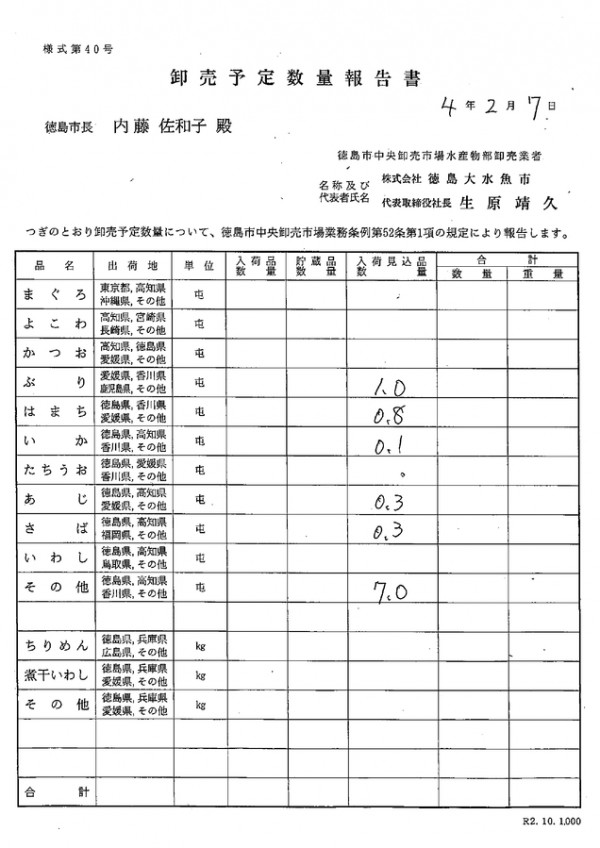 様式第40号
卸売予定数量報告書
4年2月7日
徳島市長 内藤 佐和子 殿
徳島市中央卸売市場水産物部卸売業者
名称及び 株式会社 徳島大水魚市
代表者氏名 代表取締役社長 生原靖久
つぎのとおり卸売予定数量について、徳島市中央卸売市場業務条例第52条第1項の規定により報告します。
品名 出荷地 単位 入荷品数量 貯蔵品数量 入荷見込品数量 合計
数量 重量
まぐろ 東京都, 高知県 沖縄県, その他 屯
よこわ 高知県, 宮崎県 長崎県, その他 屯
かつお 高知県, 徳島県 愛媛県, その他 屯
ぶり 愛媛県, 香川県 鹿児島県, その他 屯 1.0
はまち 徳島県, 香川県 愛媛県, その他 屯 0.8
いか 徳島県, 高知県 香川県, その他 屯 0.1
たちうお 徳島県, 愛媛県 香川県, その他 屯
あじ 徳島県, 高知県 愛媛県, その他 屯 0.3
さば 徳島県, 高知県 福岡県, その他 屯 0.3
いわし 徳島県, 高知県 鳥取県, その他 屯
その他 徳島県, 高知県 香川県, その他 屯 7.0
ちりめん 徳島県, 兵庫県 広島県, その他 kg
煮干いわし 徳島県, 兵庫県 愛媛県, その他 kg
その他 徳島県, 兵庫県 愛媛県, その他 kg
合計
R2. 10. 1,000